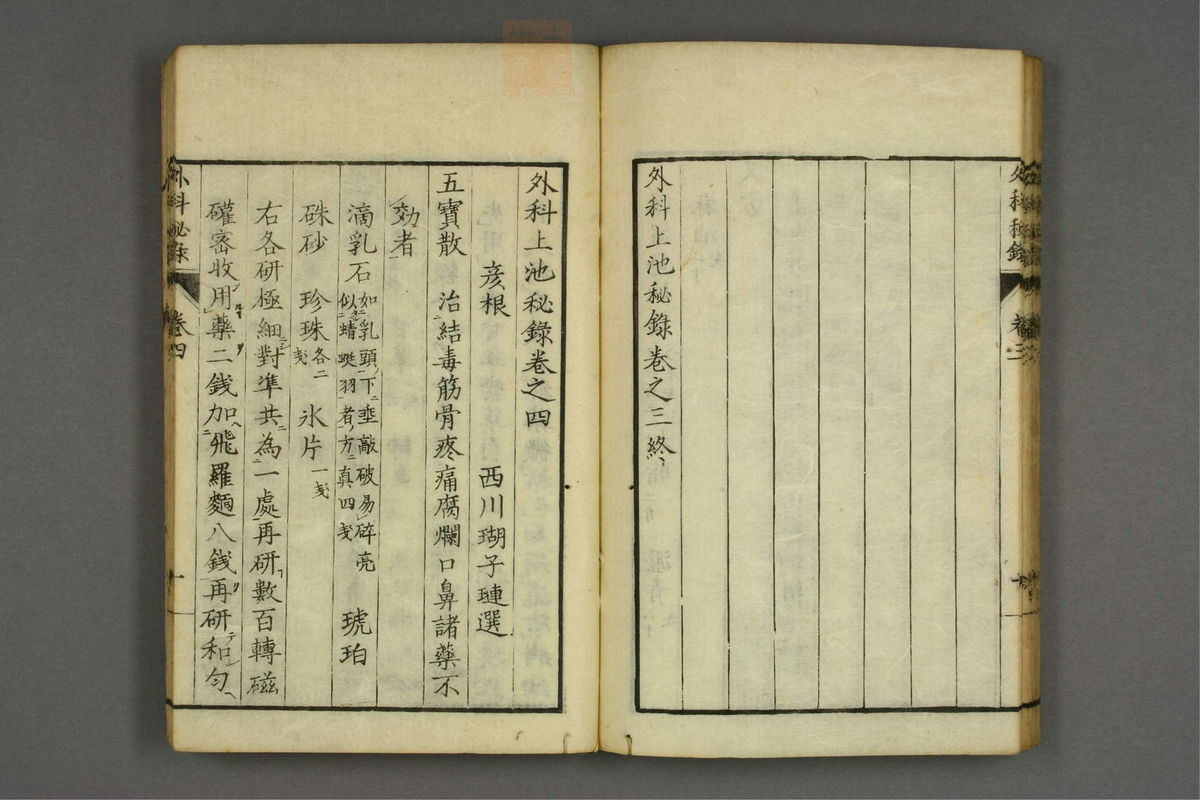 外科秘錄 卷三
外科上池秘錄卷之三終
外科上池秘錄卷之四
彦根 西川瑚子璉選
五寶散 治結毒筋骨疼痛腐爛口鼻諸藥不
効者
滴乳石 如乳頭下垂敲破易碎亮
似蜻蜓羽者方真四戔 琥珀
硃砂 珍珠 各二戔 氷片 一戔
右各研極細對準共為一處再研數百轉磁
礶密收用藥二銭加飛羅麵八銭再研和勻
外科秘錄 卷四 一